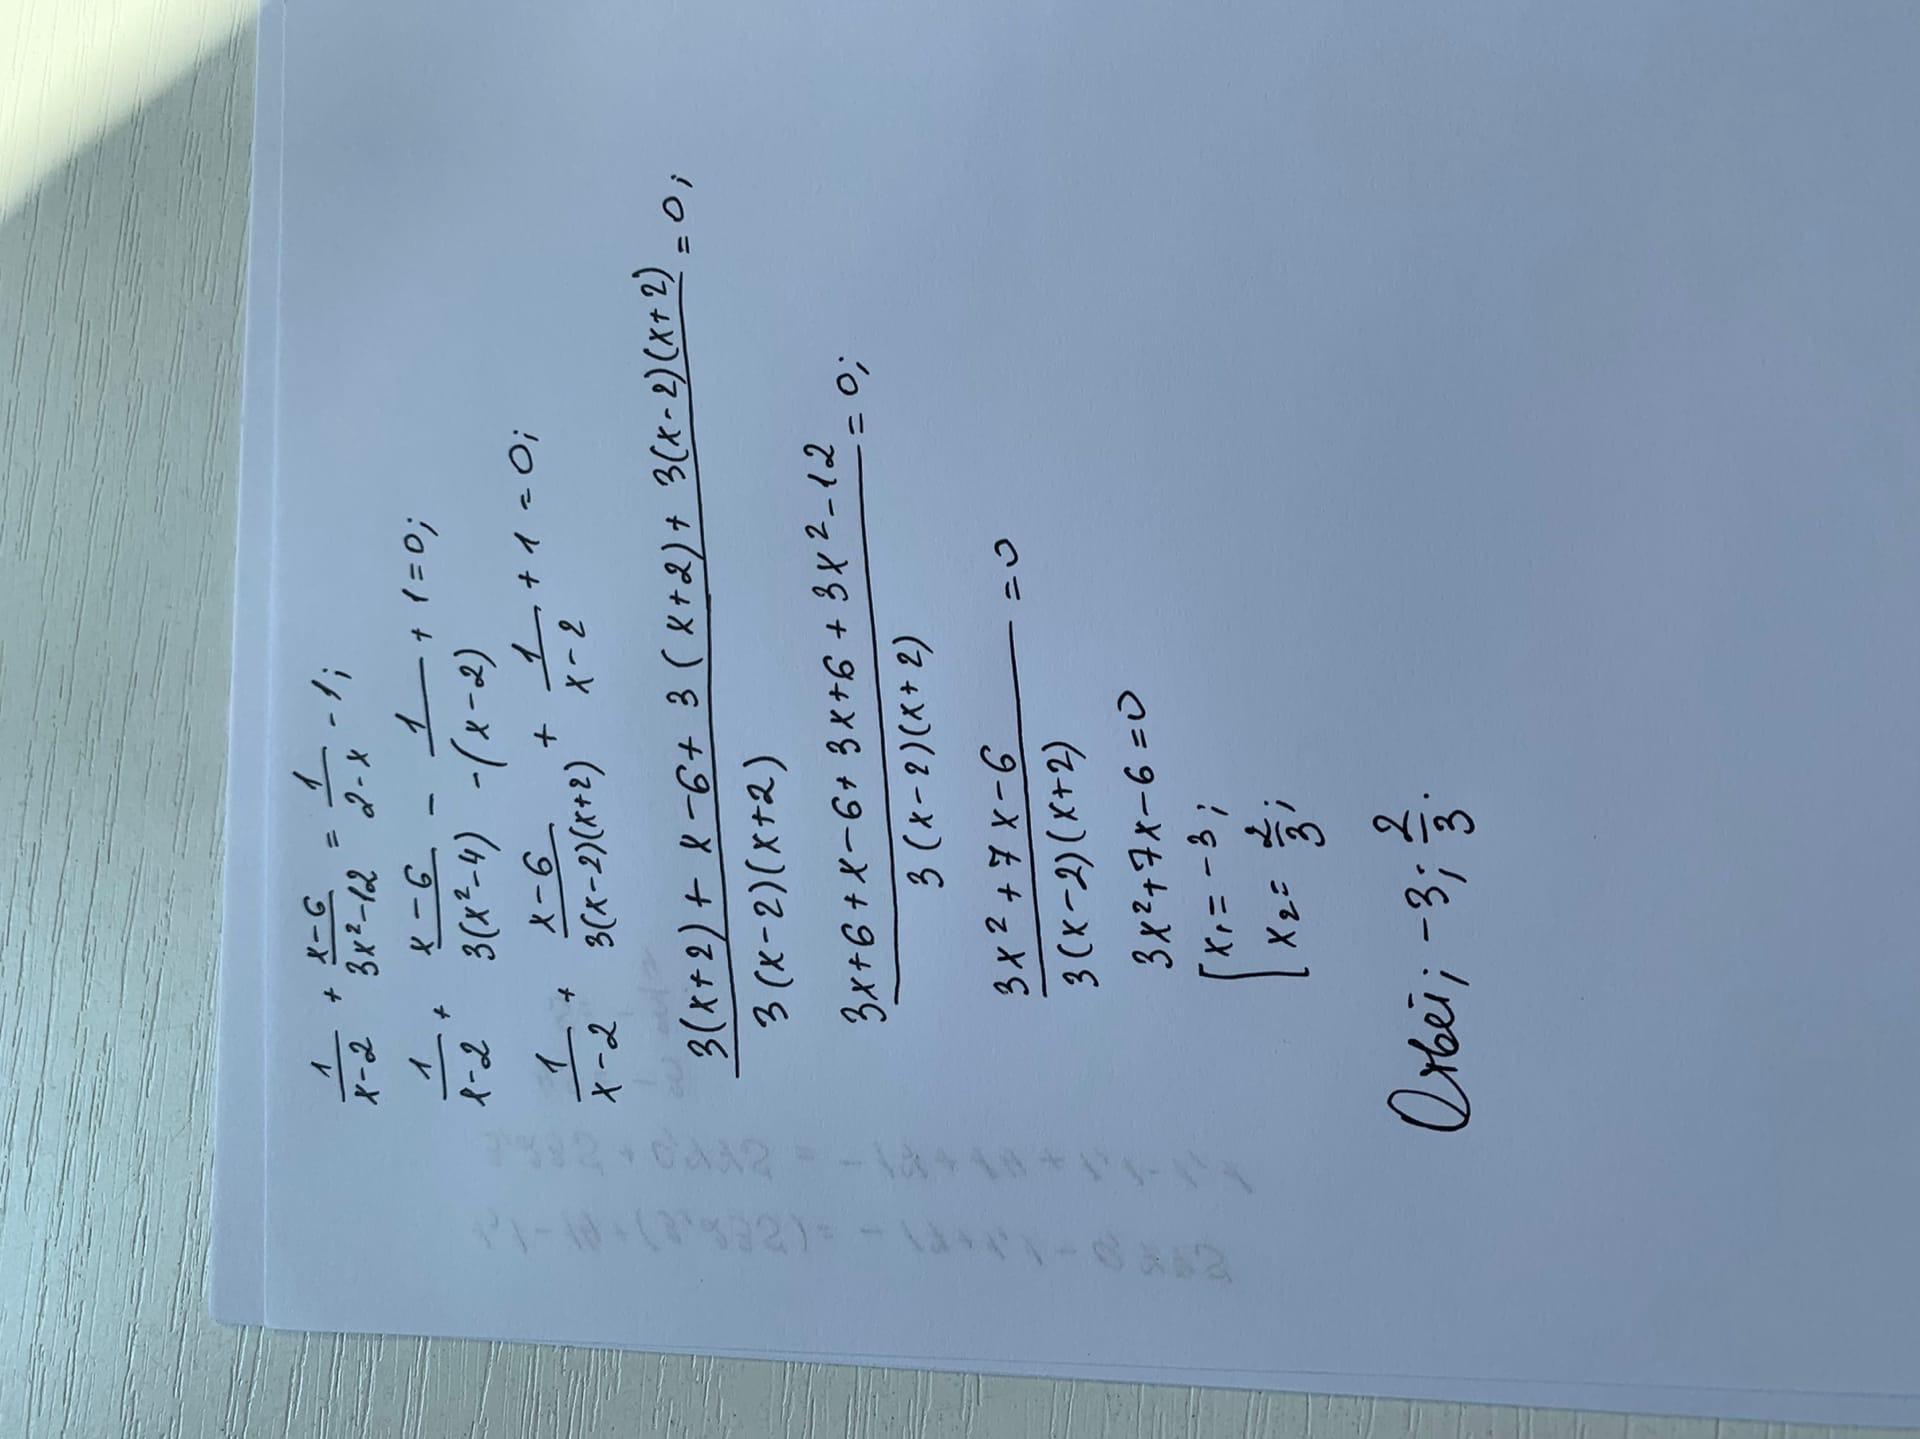 1/(x-2) + (x-6)/(3x²-12) = 1/(2-x) - 1;
1/(x-2) + (x-6)/(3(x²-4)) - 1/(-(x-2)) + 1 = 0;
1/(x-2) + (x-6)/(3(x-2)(x+2)) + 1/(x-2) + 1 = 0;
(3(x+2) + x-6 + 3(x+2) + 3(x-2)(x+2))/(3(x-2)(x+2)) = 0;
(3x+6+x-6+3x+6+3x²-12)/(3(x-2)(x+2)) = 0;
(3x²+7x-6)/(3(x-2)(x+2)) = 0
3x²+7x-6=0
[x₁ = -3;
[x₂ = 2/3;
Ответ; -3; 2/3.